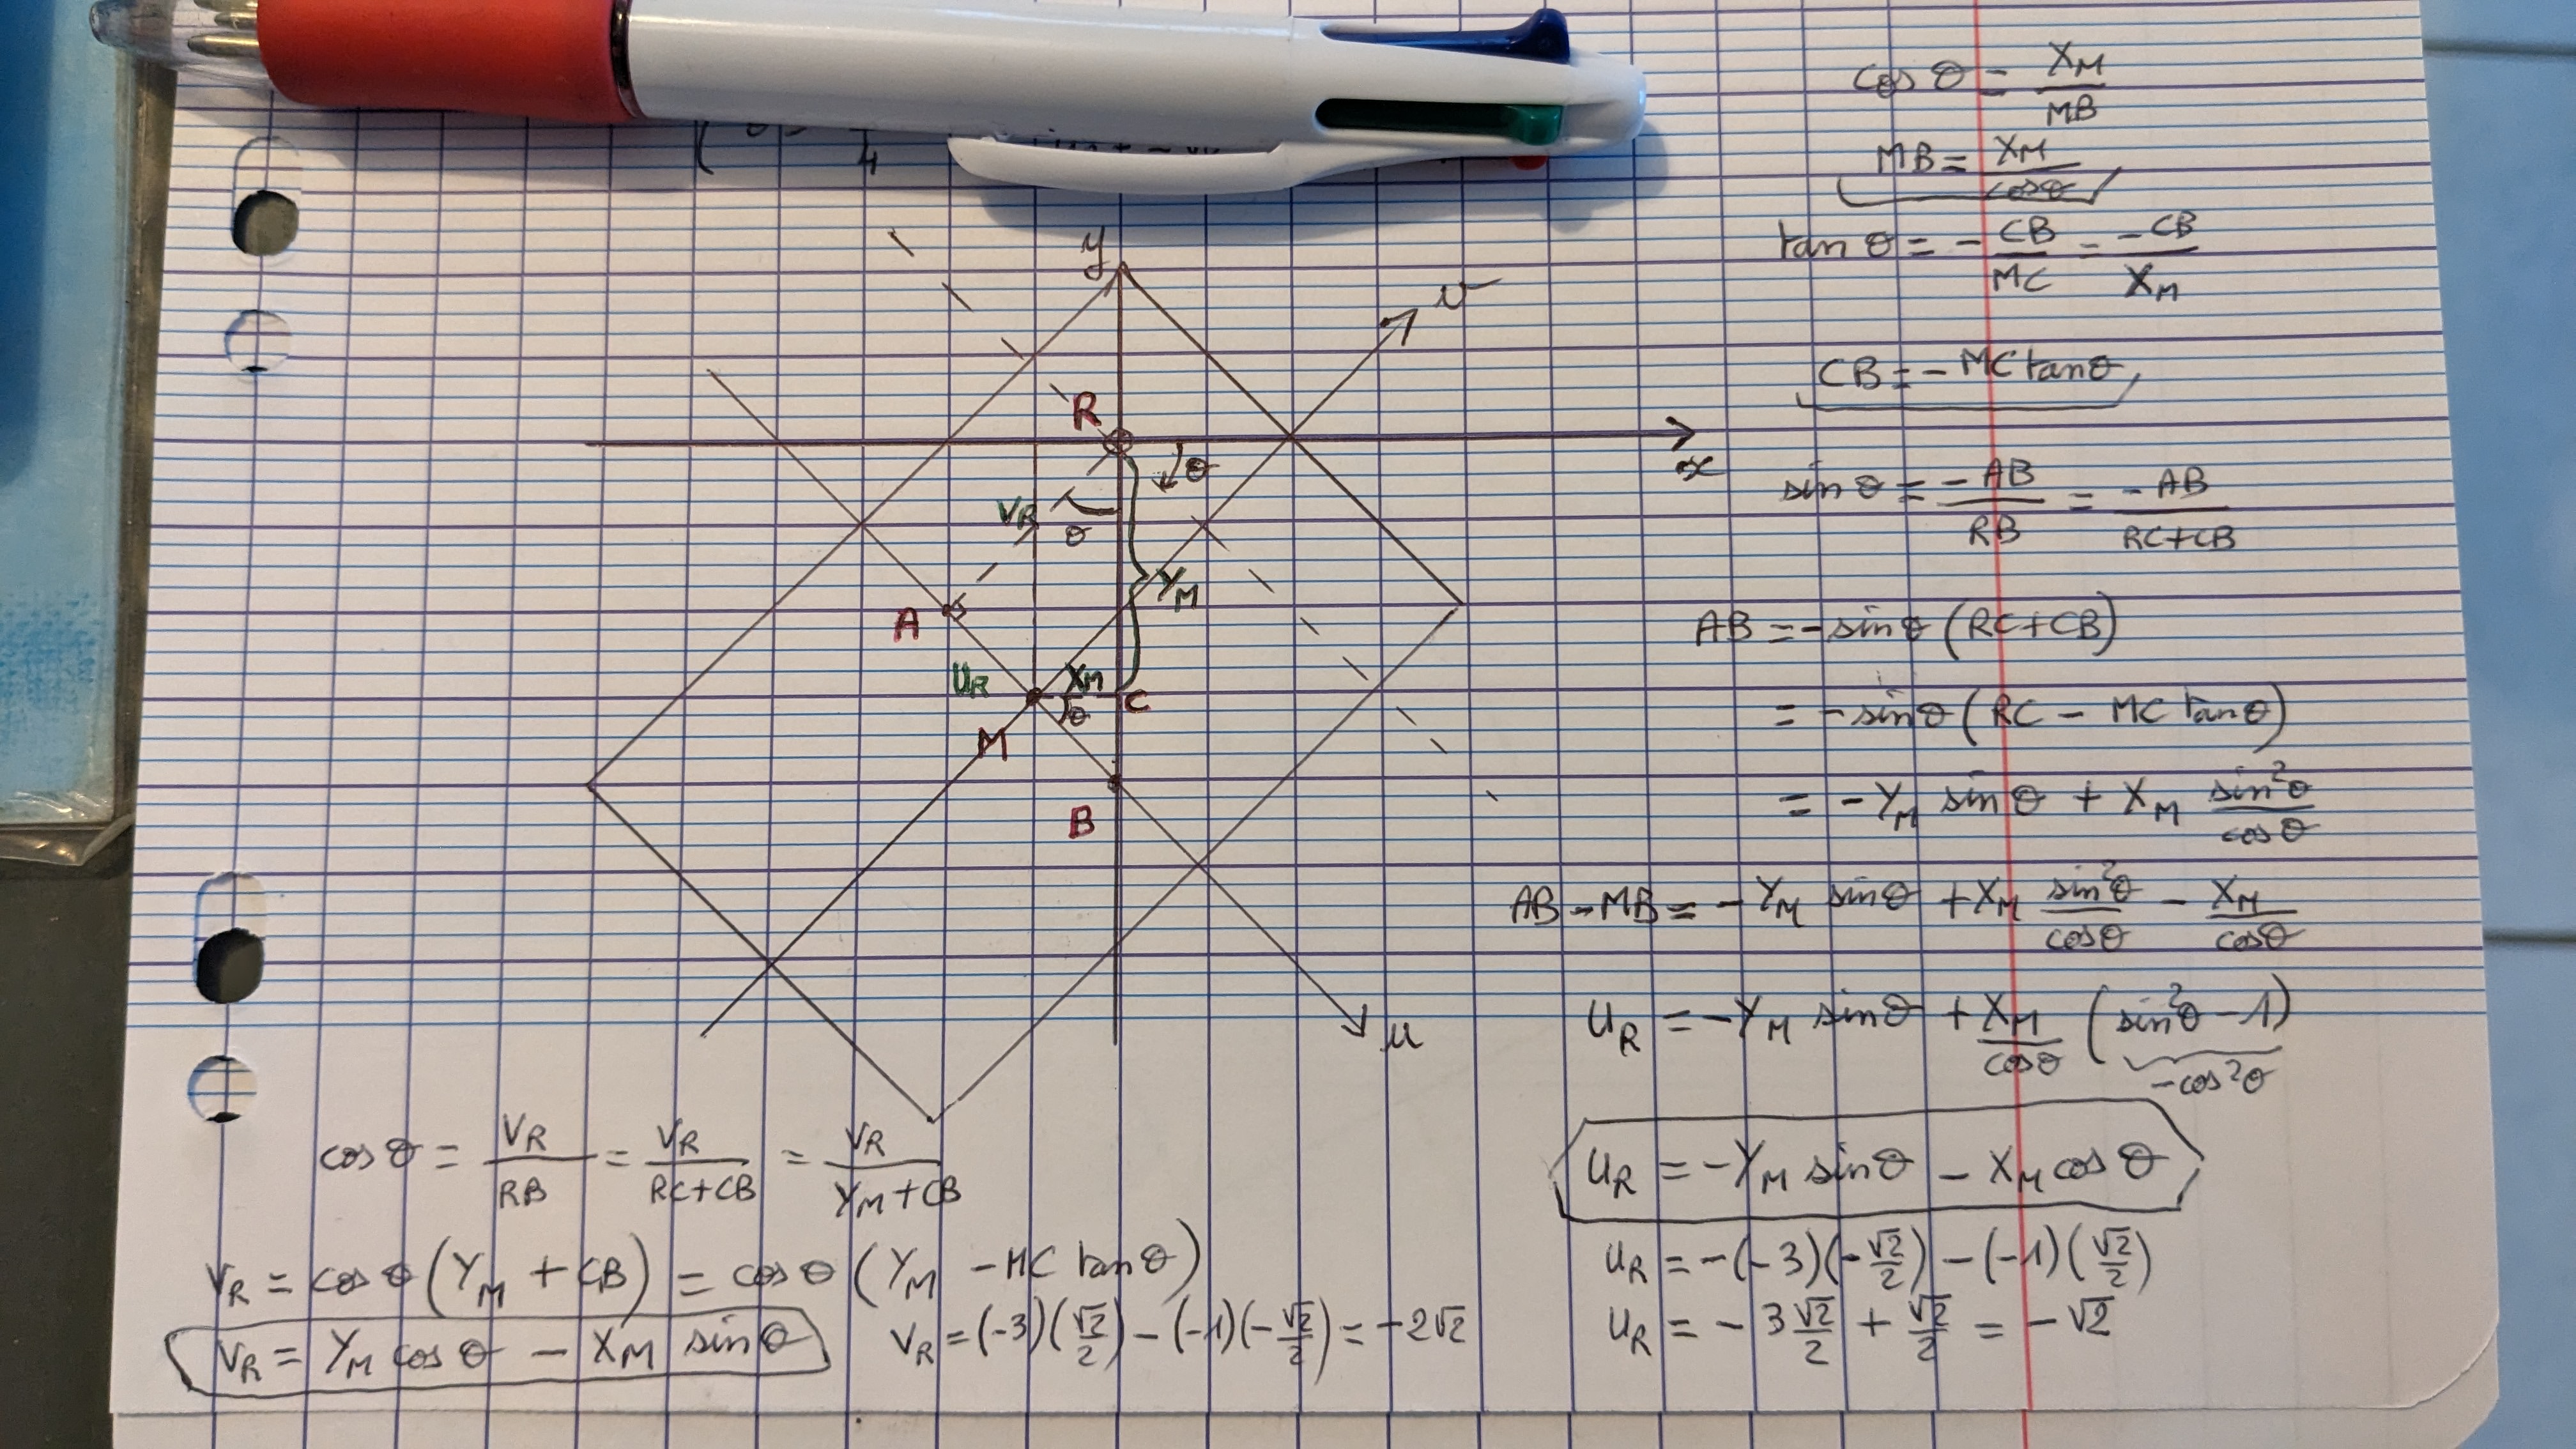 cos θ = X_M / MB
MB = X_M / cosθ
tan θ = - CB / MC = -CB / X_M
CB = - MC tanθ
sin θ = -AB / RB = -AB / RC+CB
AB = -sin θ (RC+CB)
= -sin θ (RC - MC tanθ)
= -Y_M sin θ + X_M sin²θ / cos θ
AB - MB = -Y_M sin θ + X_M sin²θ / cosθ - X_M / cosθ
U_R = -Y_M sin θ + X_M / cosθ (sin²θ - 1)
-cos²θ
U_R = -Y_M sin θ - X_M cos θ
U_R = -(-3)(-√2/2) - (-1)(√2/2)
U_R = - 3√2/2 + √2/2 = -√2
4
y
v
R
x
θ
V_R
θ
Y_M
A
U_R
X_M
C
θ
M
B
u
cos θ = V_R / RB = V_R / RC+CB = V_R / Y_M+CB
V_R = cos θ (Y_M + CB) = cos θ (Y_M - MC tan θ)
V_R = Y_M cos θ - X_M sin θ
V_R = (-3)(√2/2) - (-1)(-√2/2) = -2√2